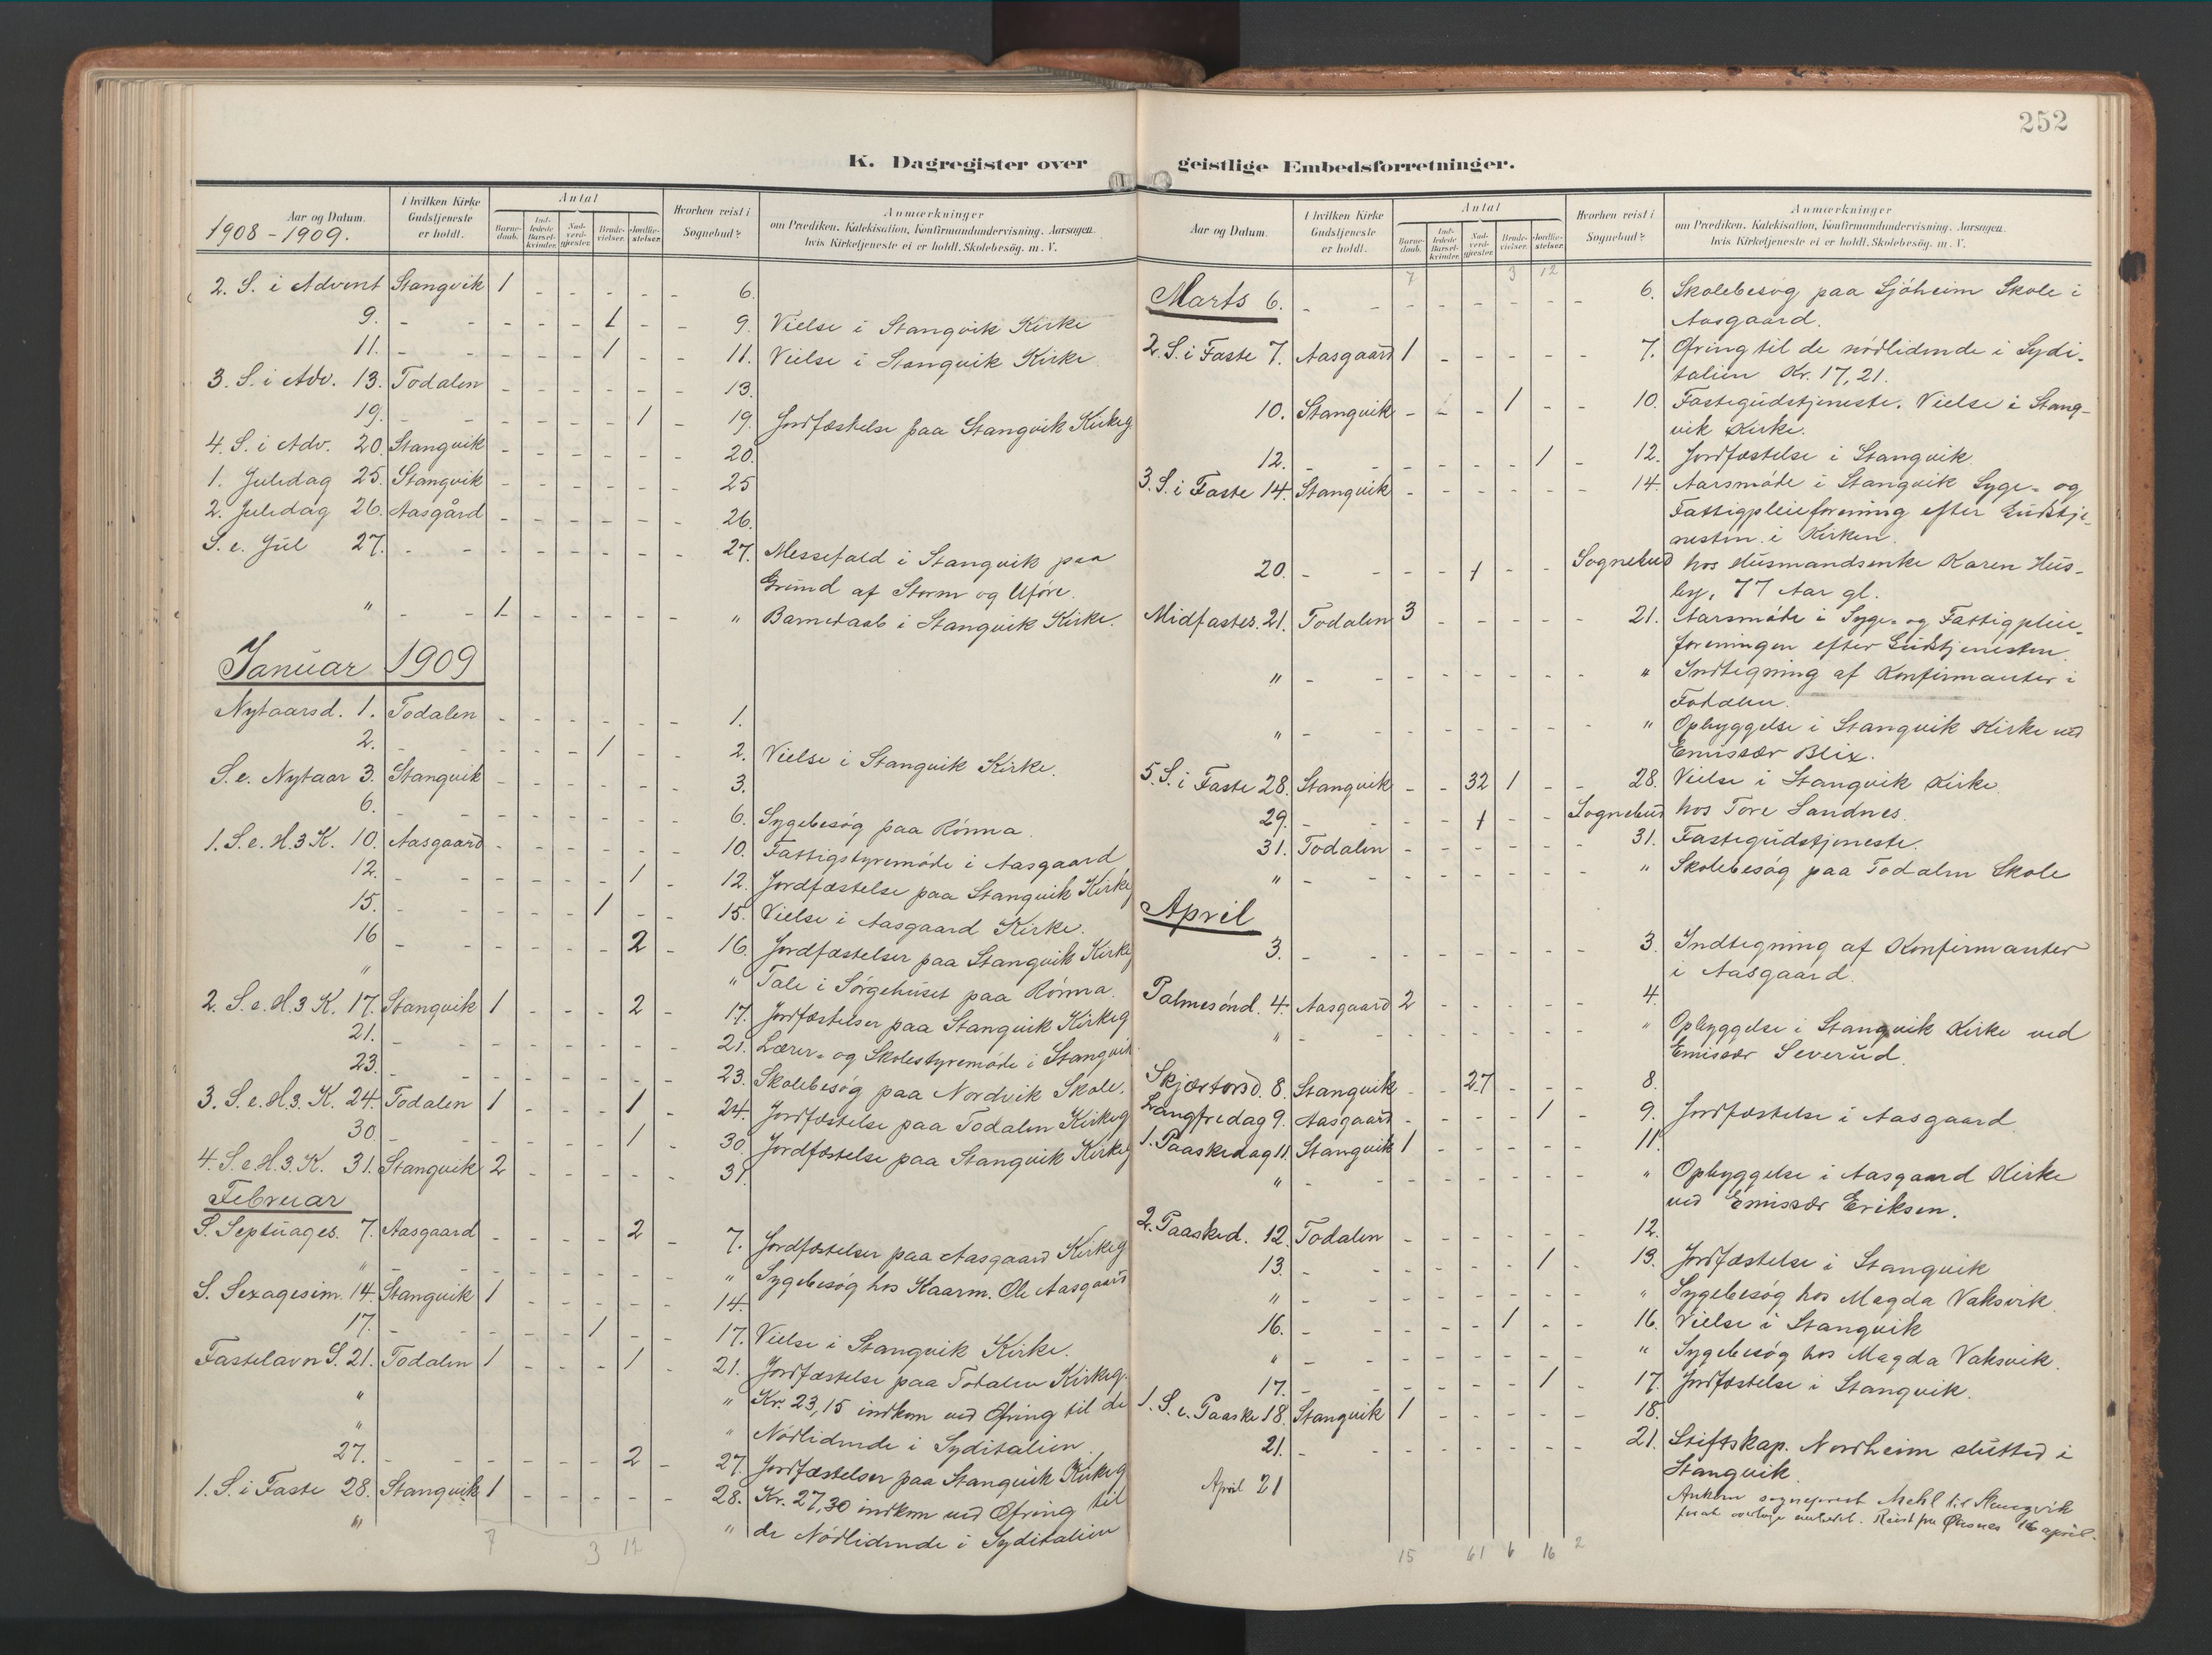 252
K. Dagregister over geistlige Embedsforretninger.
Aar og Datum. 1908 - 1909. | I hvilken Kirke Gudstjeneste er holdt. | Antal | Barnedaab. | Indledede Barselkvinder. | Nadverdgjester. | Brudevielser. | Jordfæstelser. | Hvorhen reist i Sognebud? | Anmærkninger om Prædiken, Katekisation, Konfirmandundervisning, Aarsagen hvis Kirketjeneste ei er holdt, Skolebesög m. V.
2. S. i Advent Stangvik 1 - - - - - 6.
9. - - - - - 1 - - 9. Vielse i Stangvik Kirke
11. - - - - - 1 - - 11. Vielse i Stangvik Kirke
3. S. i Adv. 13. Todalen - - - - - - 13.
19. - - - - - - 1 - 19. Jordfæstelse paa Stangvik Kirkeg
4. S. i Adv. 20. Stangvik - - - - - - 20.
1. Juledag 25. Stangvik - - - - - - 25
2. Juledag 26. Aasgård - - - - - - 26.
S. e. Jul 27. - - - - - - - - 27. Messefald i Stangvik paa
Grund af Storm og Uføre.
" - - 1 - - - - - " Barnedaab i Stangvik Kirke.
Januar 1909
Nytaarsd. 1. Todalen - - - - - - 1.
2. - - - - - 1 - - 2. Vielse i Stangvik Kirke.
S. e. Nytaar 3. Stangvik - - - - - - 3.
6. - - - - - - - - 6. Sygebesøg paa Rönna.
1. S. e. H. 3 K. 10. Aasgaard - - - - - - 10. Fattigstyremöde i Aasgaard
12. - - - - - - 1 - 12. Jordfæstelse paa Stangvik Kirkeg
15. - - - - - 1 - - 15. Vielse i Aasgaard Kirke.
16 - - - - - - 2 - 16. Jordfæstelser paa Stangvik Kirkeg
" " Tale i Sörgehuset paa Rönna.
2. S. e. H. 3 K. 17. Stangvik 1 - - - 2 - 17. Jordfæstelser paa Stangvik Kirkeg
21. - - - - - - - - 21. Lærer- og Skolestyremöde i Stangvik
23. - - - - - - - - 23. Skolebesög paa Nordvik Skole.
3. S. e. H. 3. K. 24. Todalen 1 - - - 1 - 24. Jordfæstelse paa Todalen Kirkeg
30. - - - - - - 1 - 30. Jordfæstelse paa Stangvik Kirkeg
4. S. e. H. 3. K. 31. Stangvik 2 - - - - - 31.
Februar
S. Septuages. 7. Aasgaard - - - - 2 - 7. Jordfæstelser paa Aasgaard Kirkeg
" - - - - - - - - " Sygebesög hos Kaarm. Ole Aasgaard
S. Sexagesim. 14. Stangvik 1 - - - - - 14.
17. - - - - - 1 - - 17. Vielse i Stangvik Kirke.
Fastelavn S. 21. Todalen 1 - - - 1 - 21. Jordfæstelse paa Todalen Kirkeg.
" " Kr. 23,15 indkom ved Ofring til de
" " Nödlidende i Syditalien.
27. - - - - - - 2 - 27. Jordfæstelser paa Stangvik Kirkeg
1. S. i Faste 28. Stangvik 1 - - - - - 28. Kr. 27,30 indkom ved Ofring til
" " de Nödlidende i Syditalien
7 3 12
Aar og Datum. | I hvilken Kirke Gudstjeneste er holdt. | Antal | Barnedaab. | Indledede Barselkvinder. | Nadverdgjester. | Brudevielser. | Jordfæstelser. | Hvorhen reist i Sognebud? | Anmærkninger om Prædiken, Katekisation, Konfirmandundervisning, Aarsagen hvis Kirketjeneste ei er holdt, Skolebesög m. V.
7 3 12
Marts 6. - - - - - - - - 6. Skolebesög paa Sjöheim Skole i
Aasgaard.
2. S. i Faste 7. Aasgaard 1 - - - - - 7. Ofring til de nödlidende i Sydi-
talien Kr. 17,21.
10. Stangvik - - - 1 - - 10. Fastegudstjeneste. Vielse i Stang-
vik Kirke.
12. - - - - - - 1 - 12. Jordfæstelse i Stangvik
3. S. i Faste 14. Stangvik - - - - - - 14. Aarsmöde i Stangvik Syge- og
Fattigpleieforening efter Gudstje-
nesten i Kirken.
20. - - - - 1 - - Sognebud hos Husmandsenke Karen Hus-
by, 77 Aar gl.
Midfastes. 21. Todalen 3 - - - - - 21. Aarsmöde i Syge- og Fattigpleie-
foreningen efter Gudstjenesten.
" - - - - - - - - " Indtegning af Konfirmanter i
Todalen.
" - - - - - - - - " Opbyggelse i Stangvik Kirke ved
Emissær Blix.
5. S. i Faste 28. Stangvik - - 32 1 - - 28. Vielse i Stangvik Kirke.
29. - - - - 1 - - Sognebud hos Tore Sandnes.
31. Todalen - - - - - - 31. Fastegudstjeneste.
" - - - - - - - - " Skolebesög paa Todalen Skole
April
3. - - - - - - - - 3. Indtegning af Konfirmanter
i Aasgaard.
Palmesönd. 4. Aasgaard 2 - - - - - 4.
" - - - - - - - - " Opbyggelse i Stangvik Kirke ved
Emissær Severud.
Skjærtorsd. 8. Stangvik - - 27 - - - 8.
Langfredag 9. Aasgaard - - - - 1 - 9. Jordfæstelse i Aasgaard.
1. Paaskedag 11. Stangvik 1 - - - - - 11.
" - - - - - - - - " Opbyggelse i Aasgaard Kirke
ved Emissær Eriksen.
2. Paasked. 12. Todalen - - - - - - 12.
13. - - - - - - 1 - 13. Jordfæstelse i Stangvik
" - - - - - - - - " Sygebesög hos Magda Vaksvik.
16. - - - - - 1 - - 16. Vielse i Stangvik
" - - - - - - - - " Sygebesög hos Magda Vaksvik.
17. - - - - - - 1 - 17. Jordfæstelse i Stangvik.
1. S. e. Paaske 18. Stangvik 1 - - - - - 18.
21. - - - - - - - - 21. Stiftskap. Nordheim slutted i
Stangvik.
April 21 Ankom sogneprest Mehl til Stangvik
for at overtage embedet. Reist fra Öksnes 16 april.
15 61 6 16 2